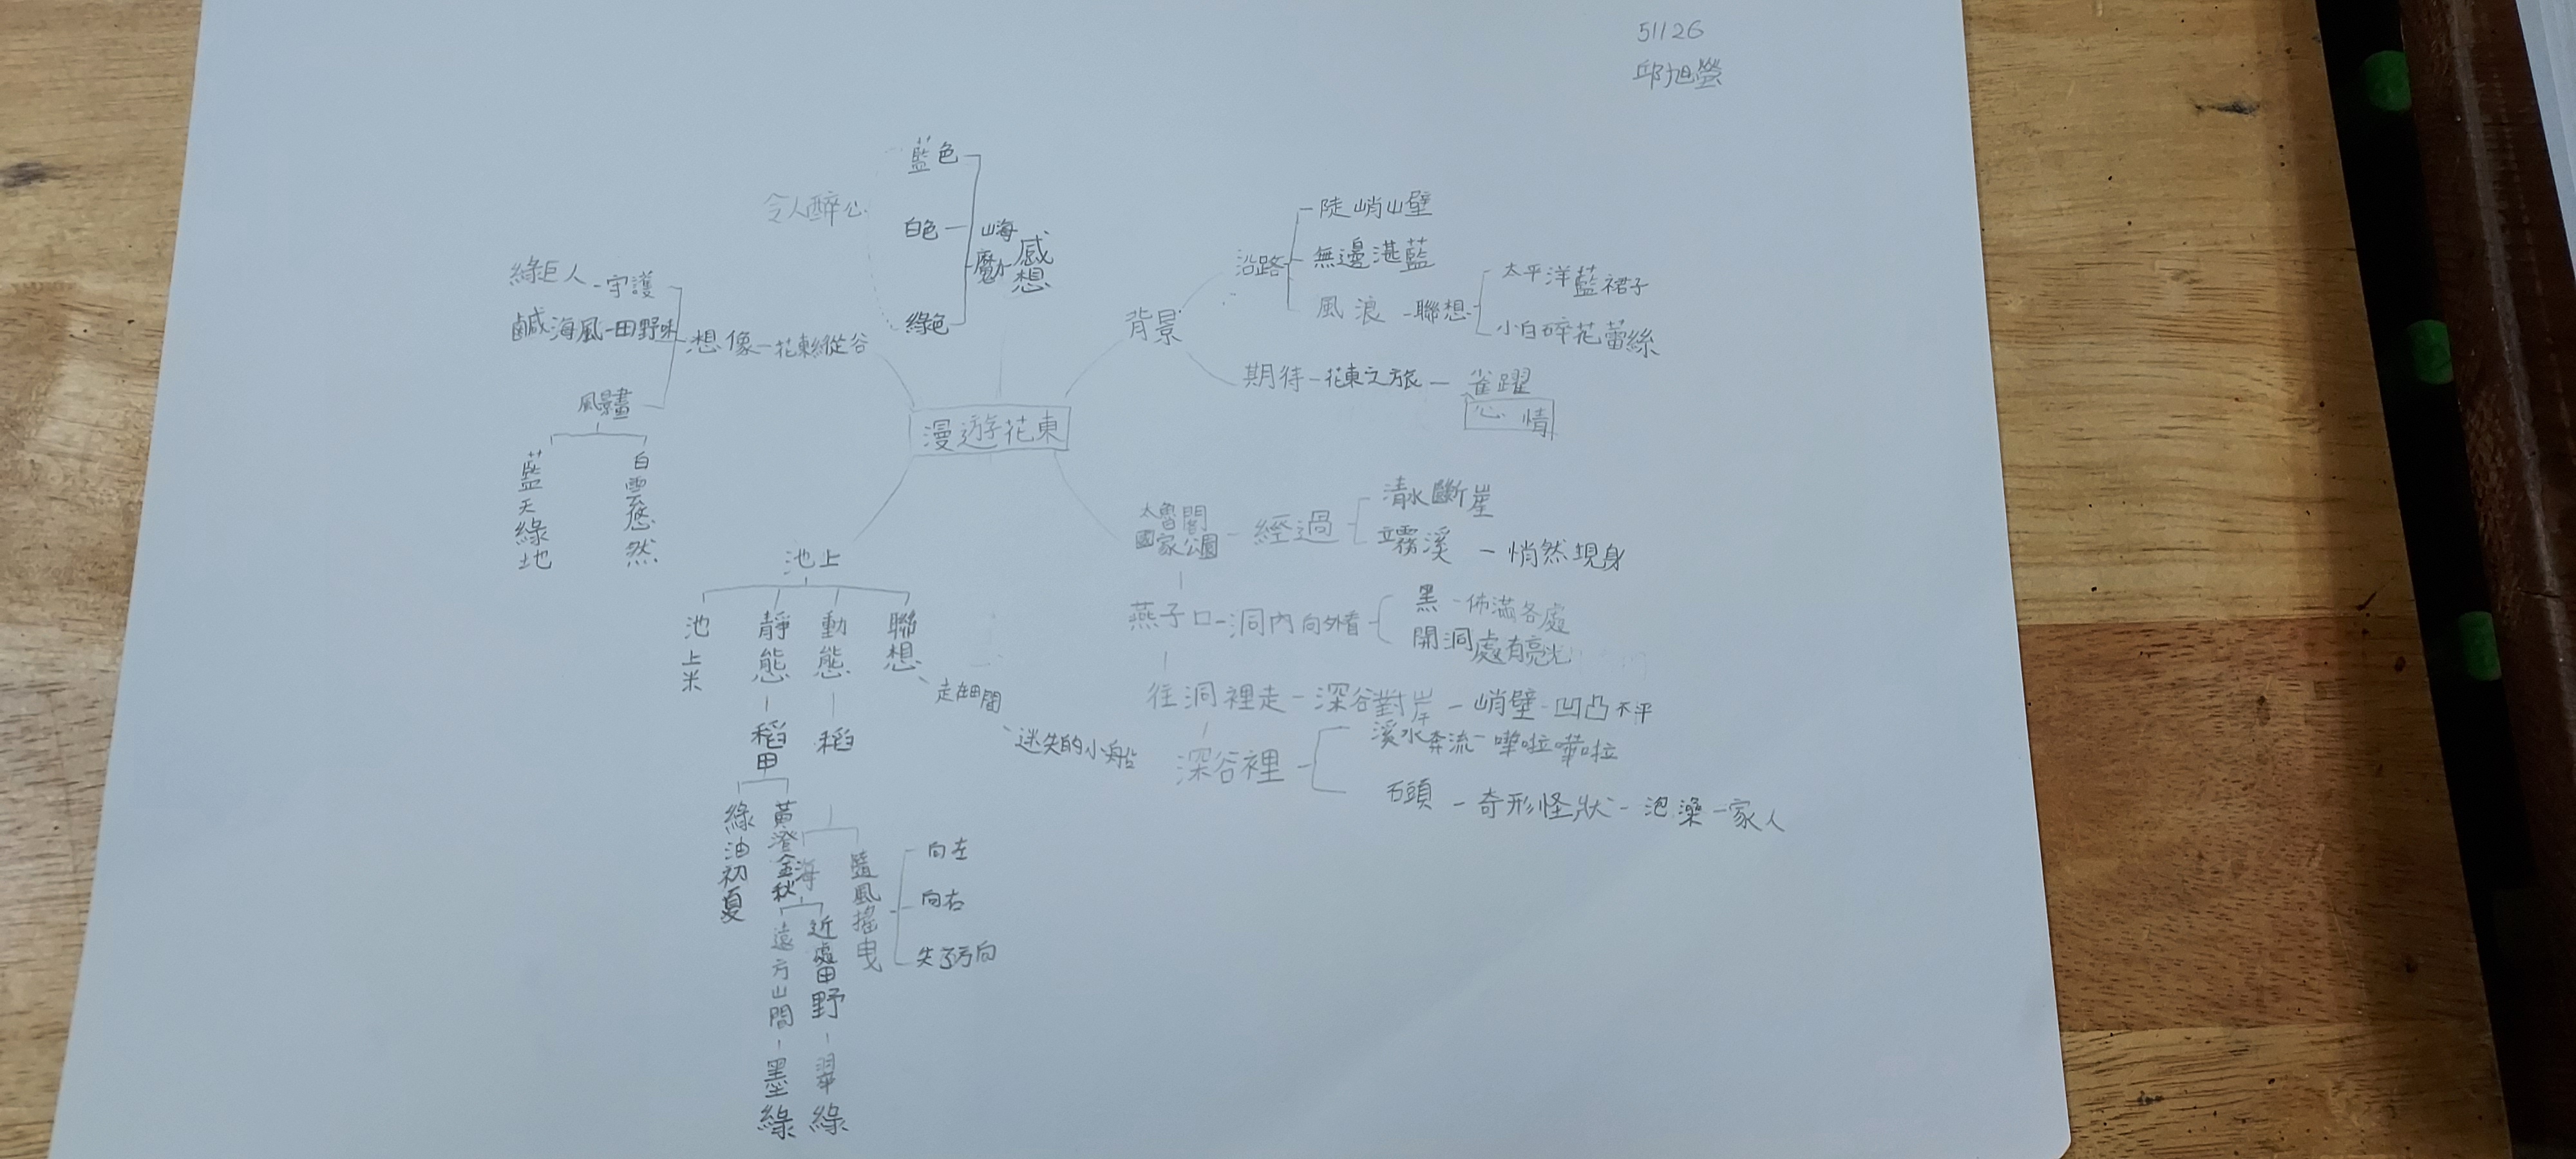 51126
邱旭瑩
漫遊花東
背景
沿路
陡峭山壁
無邊湛藍
風浪-聯想
太平洋藍裙子
小白碎花蕾絲
期待-花東之旅-雀躍
情
太魯閣
國家公園-經過
清水斷崖
立霧溪-悄然現身
燕子口-洞內向外看
黑-佈滿各處
開洞處有亮光
往洞裡走-深谷對岸-峭壁-凹凸不平
深谷裡
溪水奔流-嘩啦嘩啦
石頭-奇形怪狀-泡澡一家人
池上
池上米
靜態-稻田
綠油初夏
黃澄金秋
動態-稻
海
遠方山間-墨綠
近處田野-翠綠
隨風搖曳
向左
向右
失了方向
聯想-走在田間-迷失的小船
想像-花東縱谷
綠巨人-守護
鹹海風-田野味
風景畫
藍天綠地
白雲悠然
感想
山海
魔力
藍色
白色
綠色
令人醉心